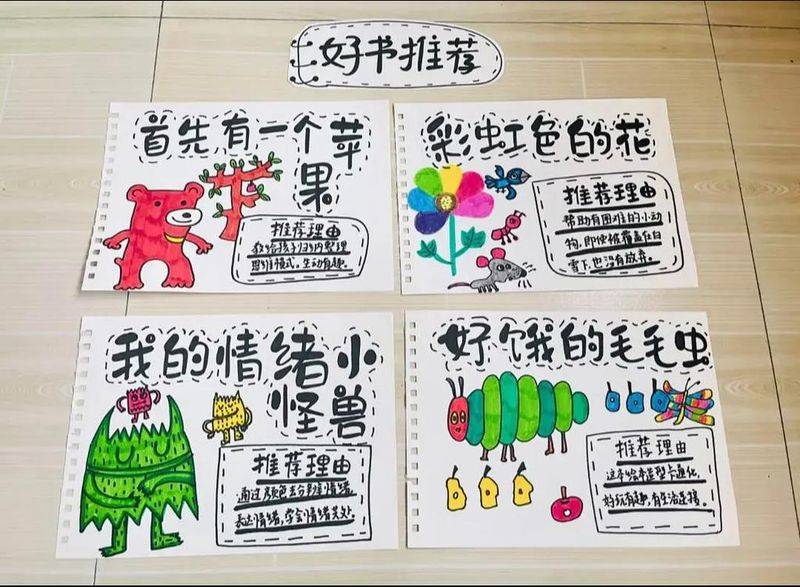 好书推荐
首先有一个苹
果
推荐理由
教给孩子归纳整理
思维模式。生动有趣。
彩虹色的花
推荐理由
帮助有困难的小动
物,即使被覆盖在白
雪下,也没有放弃。
我的情绪小
怪兽
推荐理由
通过颜色去分类情绪,
表达情绪,学会情绪共处。
好饿的毛毛虫
推荐理由
这本绘本造型卡通化,
好玩有趣,有生活连接。